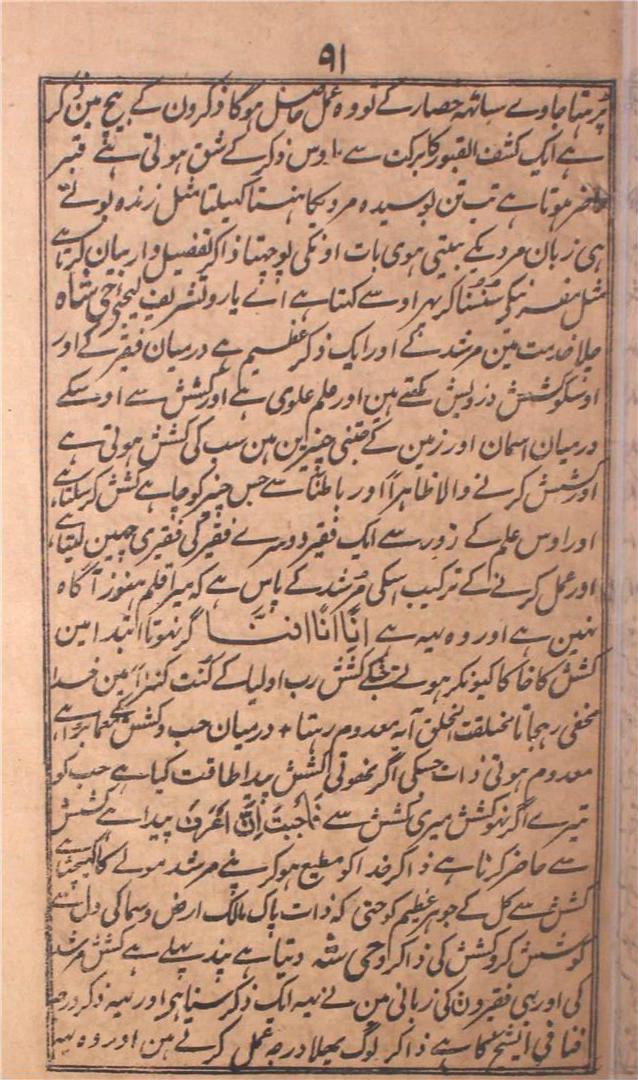 ۹۱
پڑہتا جاوے ساتہہ حصار کے تو وہ عمل حاصل ہوگا ذکرون کے بیچ مین ذکر
ہے ایک کشف القبور کا برکت سے اوس ذکر کے شق ہوتی ہے قبر
حاضر ہوتا ہے تب تن بوسیدہ مردیکا ہنستا کہیلتا مثل زندہ بولتے
ہی زبان مردیکے بیتی ہوی بات اونکی پوچہتا ذاکر تفصیل وار بیان کرتا ہے
مثل کر پہر اوسے کہتا ہے اے یارو تشریف لیجئے شاہ
چلا خدمت مین مرشد کے اور ایک ذکر عظیم ہے درمیان فقیر کے اور
اوسکو کشش درویش کہتے ہین اور علم علوی ہے اور کشش سے اوسکے
درمیان اسمان اور زمین کے جتنی چیزین ہین سب کی کشش ہوتی ہے
اور کشش کرنے والا ظاہراً اور باطناً سے جس چیز کو چاہے کشش کرسکتا ہے
اور اوس علم کے زور سے ایک فقیر دوسرے فقیر کی فقیری چہین لیتا ہے
اور عمل کرنے کے ترکیب اسکی مرشد کے پاس ہے کہ میرا قلم ہنوز آگاہ
نہین ہے اور وہ یہہ ہے اِنَّا اَنَّا افنَا گر نہوتا ابتدا مین
کشش کا خاکا کیونکر ہوتے کشش رب اولیا کے کُنت کنزاً مین خدا
مخفی رہجاتا فخلقت الخلق آیہ معدوم رہتا + درمیان حب و کشش کے بڑا ہے
معدوم ہوتی ذات جسکی اگر نہوتی کشش پیدا طاقت کیا ہے حب کو
تیرے اگر نہو کشش میری کشش سے فاحببت اَن اُعرَف پیدا ہے کشش
سے حاضر کرنا ہے ذاکر خدا کو مطیع ہوکر مرشد مولے کا کہینچتا ہے
کشش سے کل کے جوہر عظیم کو حتی کہ ذات پاک مالک ارض وسما کی دل سے
کوشش کرو کشش کی ذاکر و حی شہ دیتا ہے پند پہلے ہے کشش مرشد
کی اور یہی فقیرون کی زبانی مین نے یہہ ایک ذکر سنا ہی اور یہہ ذکر درجہ
فنا فی الشیخ کا ہے ذاکر لوگ پہلا درجہ عمل کرتے ہین اور وہ یہہ